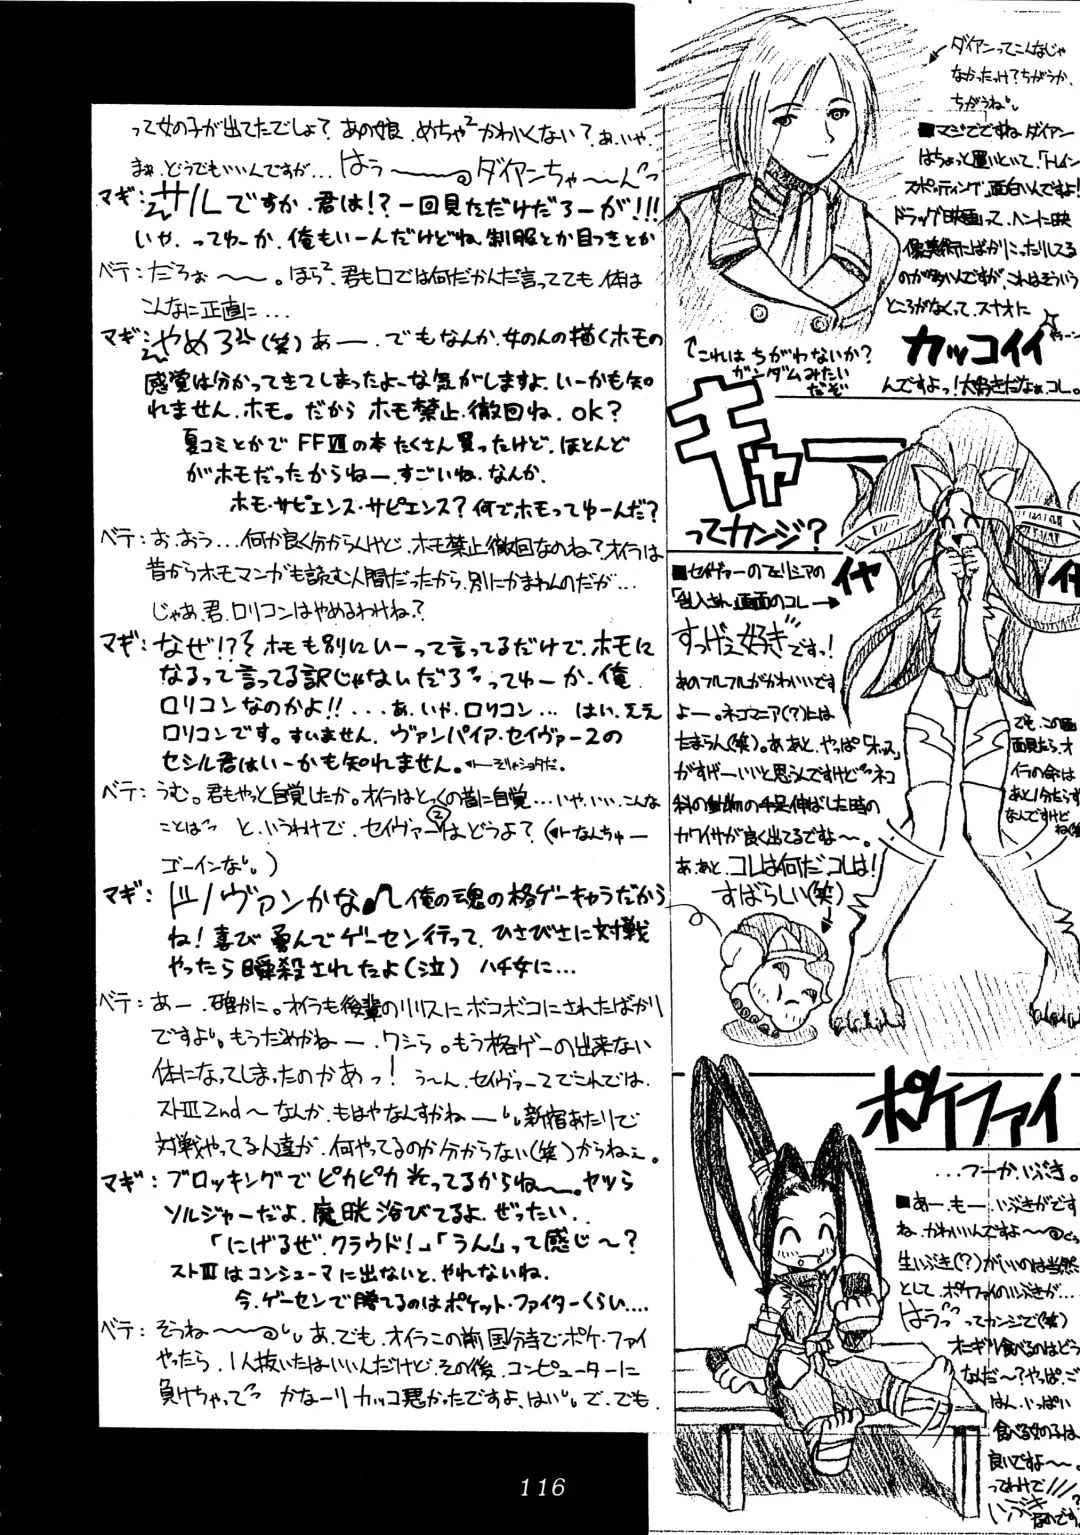 って女の子が出てたでしょ？あの娘、めちゃ²かわいくない？あ、いや、
まぁ、どうでもいいんですが…はぅ〜〜〜 ダイアンちゃ〜〜ん
マギ：サルですか、君は!?一回見ただけだろーが!!!
いや、ってゆーか、俺もいーんだけどね、制服とか目つきとか
ベテ：だろぉ〜〜。ほら²、君も口では何だかんだ言ってても体は
こんなに正直に…
マギ：やめろ(笑)あー、でもなんか、女のんの描くホモの
感覚は分かってきてしまったよーな気がしますよ、いーかも知
れません、ホモ。だからホモ禁止、撤回ね、OK？
夏コミとかでFFⅦの本たくさん買ったけど、ほとんど
がホモだったからねー、すごいね、なんか、
ホモ・サピエンス・サピエンス？何でホモってゆーんだ？
ベテ：お、おう…何か良く分からんけど、ホモ禁止撤回なのね？オイラは
昔からホモマンガも読む人間だったから、別にかまわんのだが…
じゃあ、君、ロリコンはやめるわけね？
マギ：なぜ!?ホモも別にいーって言ってるだけで、ホモに
なるって言ってる訳じゃないだろってゆーか、俺、
ロリコンなのかよ!!…あ、いや、ロリコン…はい、ええ
ロリコンです。すいません、ヴァンパイア・セイヴァー2の
セシル君はいーかも知れません。←それじゃショタだ。
ベテ：うむ。君もやっと自覚したか。オイラはとっくの昔に自覚…いや、いい、こんな
ことはと、いうわけで、セイヴァー②はどうよ？（←なんちゅー
ゴーインな）
マギ：ドノヴァンかな♪俺の魂の格ゲーキャラだから
ね！喜び勇んでゲーセン行って、ひさびさに対戦
やったら瞬殺されたよ(泣) ハチ女に…
ベテ：あー、確かに。オイラも後輩のリリスにボコボコにされたばかり
ですよ。もうだめかねー、ワシら。もう格ゲーの出来ない
体になってしまったのかあっ！う〜ん、セイヴァー2でこれでは、
ストⅢ2nd〜なんか、もはやなんすかねー新宿あたりで
対戦やってる人達が、何やってるのか分からない(笑)からねぇ。
マギ：ブロッキングでピカピカ光ってるからね〜。ヤツら
ソルジャーだよ、魔晄浴びてるよ、ぜったい、
「にげるぜ、クラウド！」「うん」って感じ〜？
ストⅢはコンシューマに出ないと、やれないね、
今、ゲーセンで勝てるのはポケット・ファイターくらい….
ベテ：そうね〜〜、あ、でも、オイラこの前国分寺でポケ・ファイ
やったら、1人抜いたはいいんだけど、その後、コンピューターに
負けちゃって かな〜りカッコ悪かったですよ、はい。で、でも、
116
ダイアンってこんなじゃ
なかったっけ？ちがうか、
ちがうね。
■マジでですね、ダイアン
はちょっと置いといて、「トレイン
スポッティング」、面白いんですよ！
ドラッグ映画って、ヘンに映
像美術にばかりこったりしてる
のが多いんですが、これはそういう
ところがなくって、スナオに
カッコイイ
んですよっ！大好きだなぁ、コレ。
↑これはちがわないか？
ガンダムみたい
だぞ
キャー
ってカンジ？
■セイヴァーのフェリシアの
「乱入され」画面のコレ→
イヤ
すっげえ好きですっ！
あのフルフルがかわいいです
よー。ネコマニア(？)には
たまらん(笑)。ああと、やっぱ「
がすげーいいと思うんですけどネコ
科の動物の手足伸ばした時の
カワイサが良く出てるですよ〜。
あ、あと、コレは何だ、コレは！
すばらしい(笑)
でも、この画
面見たら、オ
イラの命は
あと1分たらず
なんですけど
ね(笑)
ポケファイ
…つーか、いぶき。
■あー、もー、いぶきがです
ね、かわいんですよ〜〜
生いぶき(？)がいいのは当然
として、ポケファイのいぶきが…
はぅってカンジで(笑)
オニギリ食べるのはどう
なんだ〜？やっぱ、ご
はん、いっぱい
食べる女の子は、
良いですよ〜〜。
ってわけで
いぶき
なのです。